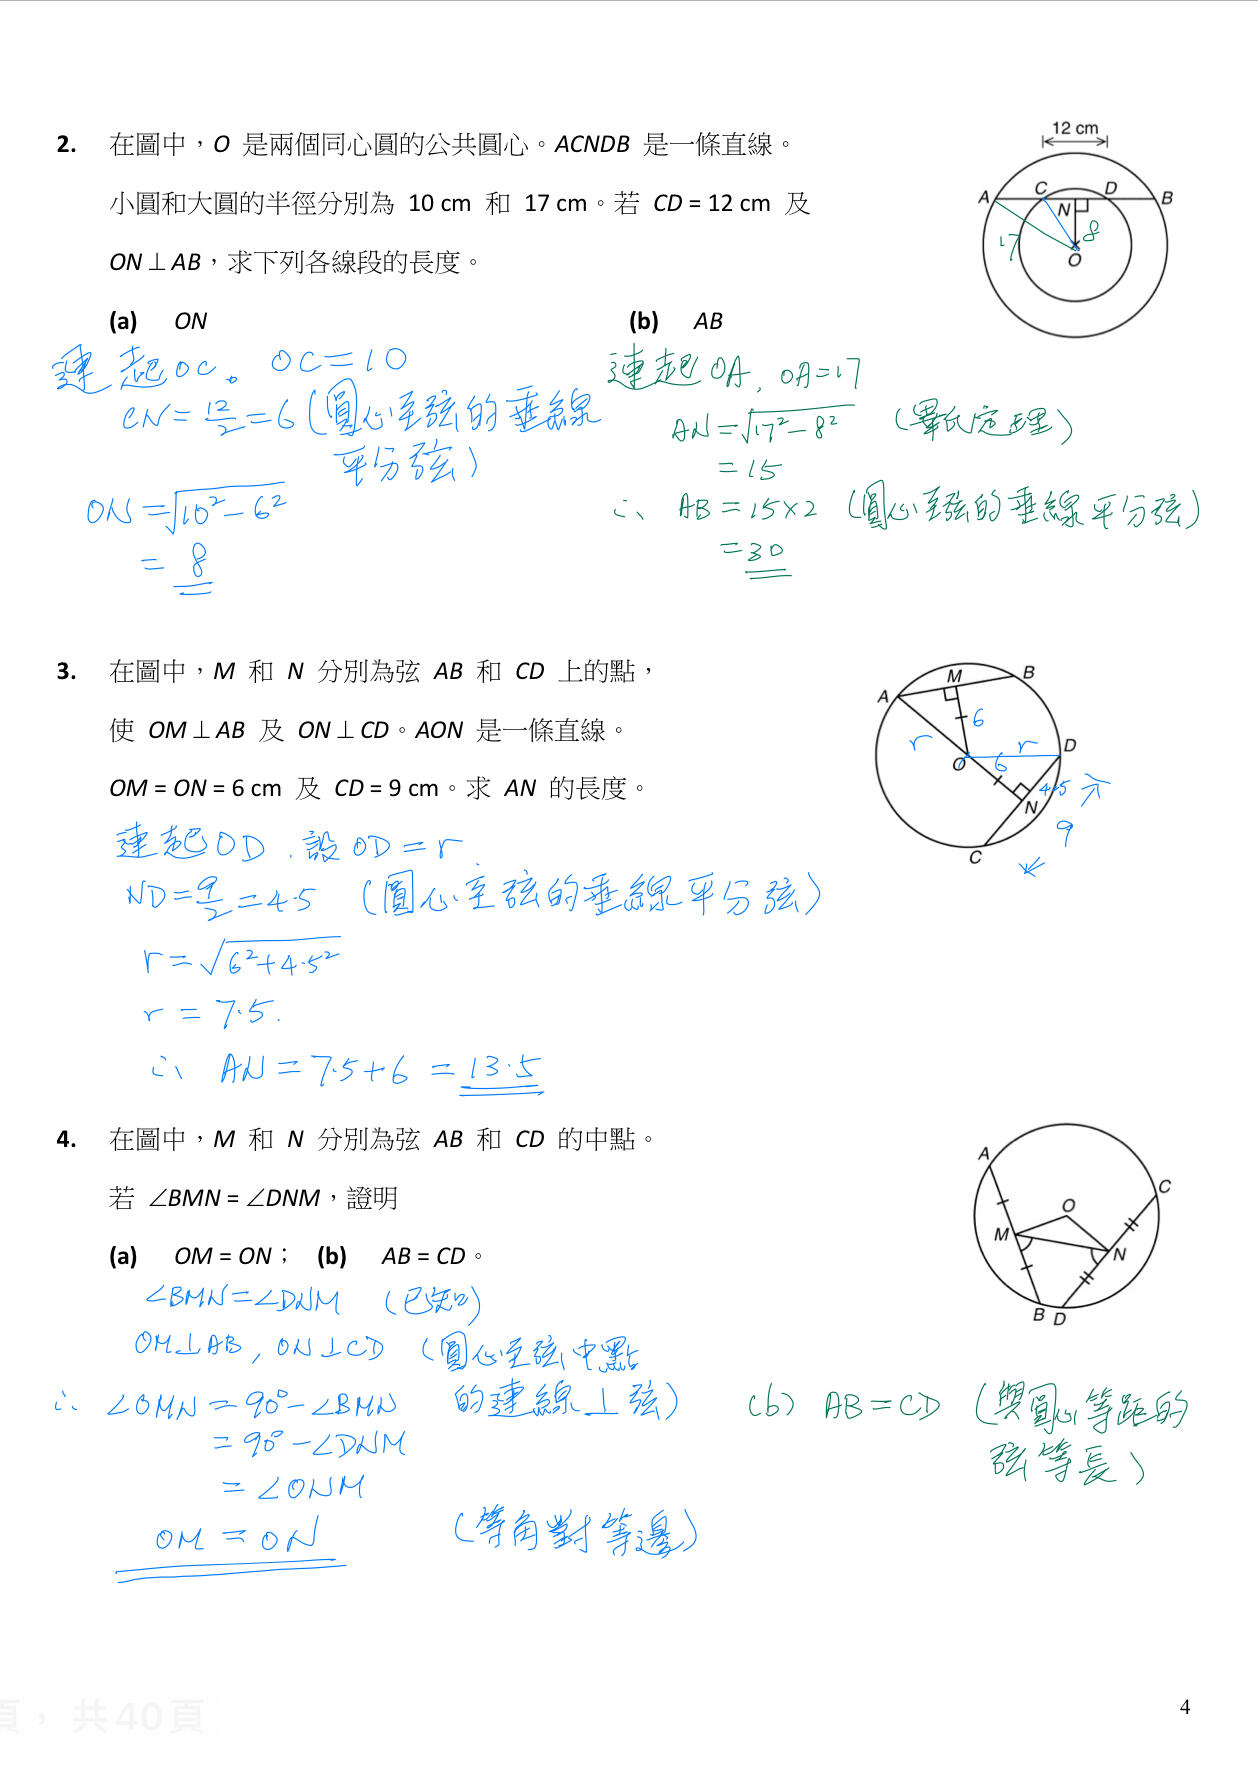 2. 在圖中，O 是兩個同心圓的公共圓心。ACNDB 是一條直線。
小圓和大圓的半徑分別為 10 cm 和 17 cm。若 CD = 12 cm 及
ON ⊥ AB，求下列各線段的長度。
12 cm
A C D B
N
17 8
O
(a) ON (b) AB
連起OC。OC=10
CN=12/2=6 (圓心至弦的垂線
平分弦)
ON=√(10²-6²)
= 8
連起OA, OA=17
AN=√(17²-8²) (畢氏定理)
=15
∴ AB=15×2 (圓心至弦的垂線平分弦)
=30
3. 在圖中，M 和 N 分別為弦 AB 和 CD 上的點，
使 OM ⊥ AB 及 ON ⊥ CD。AON 是一條直線。
OM = ON = 6 cm 及 CD = 9 cm。求 AN 的長度。
A M B
6
r r D
O 6
4.5
N
9
C
連起OD. 設OD=r
ND=9/2=4.5 (圓心至弦的垂線平分弦)
r=√(6²+4.5²)
r = 7.5.
∴ AN=7.5+6 =13.5
4. 在圖中，M 和 N 分別為弦 AB 和 CD 的中點。
若 ∠BMN = ∠DNM，證明
(a) OM = ON； (b) AB = CD。
A
C
O
M
N
B D
∠BMN=∠DNM (已知)
OM⊥AB, ON⊥CD (圓心至弦中點
的連線⊥弦)
∴ ∠OMN=90°-∠BMN
=90°-∠DNM
=∠ONM
OM=ON (等角對等邊)
(b) AB=CD (與圓心等距的
弦等長)
頁， 共40頁
4